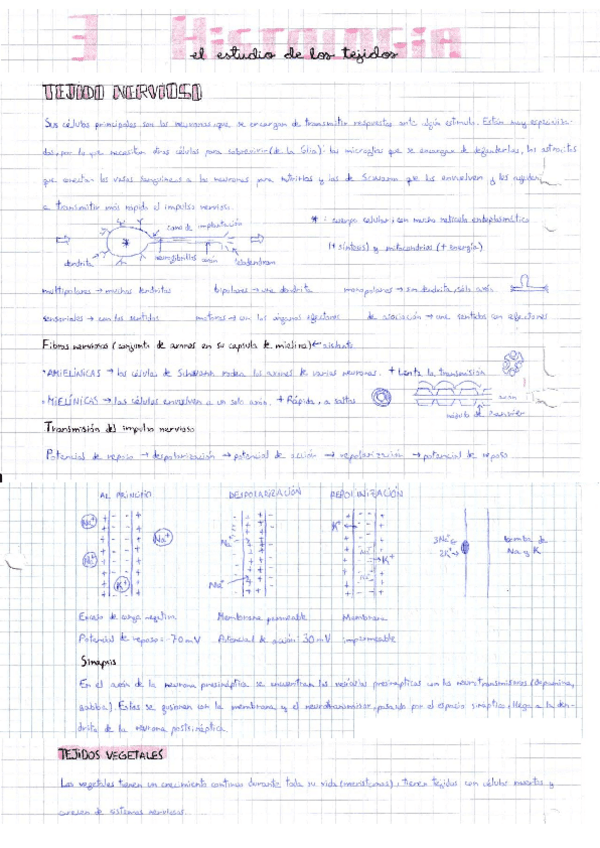 3 HISTOLOGIA
el estudio de los tejidos
TEJIDO NERVIOSO
Sus células principales son las neuronas que se encargan de transmitir respuestas ante algún estímulo. Están muy especializa-
das, por lo que necesitan otras células para sobrevivir (de la Glia): las microglías que se encargan de defenderlas, los astrocitos
que conectan los vasos sanguíneos a las neuronas para nutrirlas y las de Schwann que las envuelven y les ayudan
a transmitir más rápido el impulso nervioso.
cono de implantación
* : cuerpo celular, con mucho retículo endoplasmático
(+ síntesis) y mitocondrias (+ energía)
dendrita neurofibrillas axón telodendron
multipolares → muchas dendritas bipolares → una dendrita monopolares → sin dendrita, sólo axón
sensoriales → con los sentidos motoras → con los órganos efectores de asociación → une sentidos con efectores
Fibras nerviosas (conjunto de axones en su capsula de mielina) ← aislante
· AMIELÍNICAS → las células de Schwann rodean los axones de varias neuronas. + Lenta la transmisión
· MIELÍNICAS → las células envuelven a un solo axón. + Rápida, a saltos
axón
nódulo de Ranvier
Transmisión del impulso nervioso
Potencial de reposo → despolarización → potencial de acción → repolarización → potencial de reposo
AL PRINCIPIO DESPOLARIZACIÓN REPOLARIZACIÓN
Na+ Na+ Na+ K+
Na+ Na+
K+ K+
3Na+ 2K+ bomba de
Na y K
Exceso de carga negativa. Membrana permeable Membrana
Potencial de reposo: -70 mV Potencial de acción: 30 mV impermeable
Sinapsis
En el axón de la neurona presináptica se encuentran las vesículas presinápticas con los neurotransmisores (dopamina,
gabba). Estas se fusionan con la membrana y el neurotransmisor, pasando por el espacio sináptico, llega a la den-
drita de la neurona postsináptica.
TEJIDOS VEGETALES
Los vegetales tienen un crecimiento continuo durante toda su vida (meristemos), tienen tejidos con células muertas y
carecen de sistemas nerviosos.